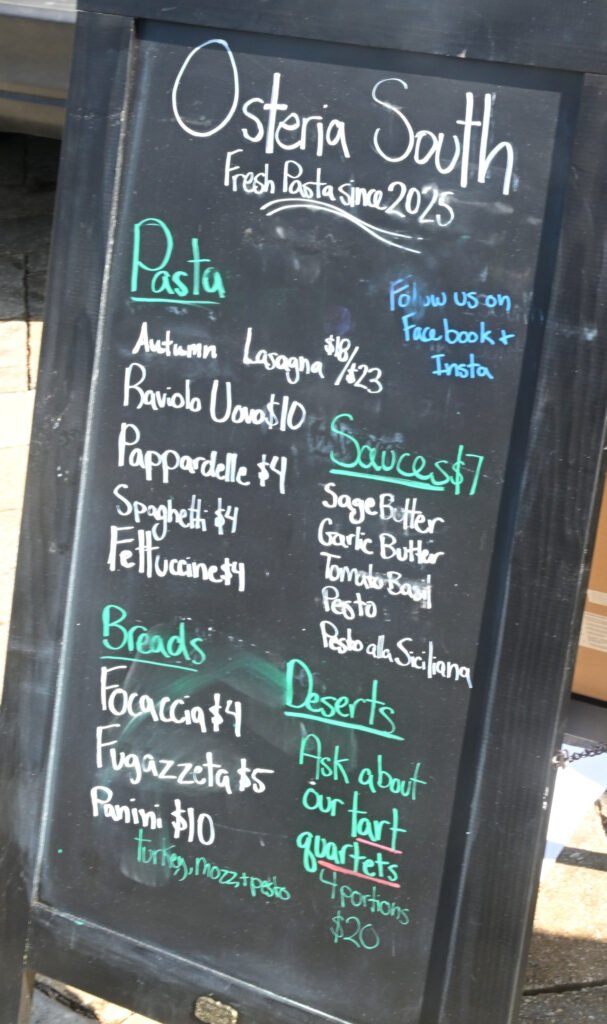 Osteria South
Fresh Pasta since 2025
Pasta
Follow us on
Facebook +
Insta
Autumn Lasagna $18/$23
Raviolo Uovo $10
Pappardelle $4
Spaghetti $4
Fettuccine $4
Sauces $7
Sage Butter
Garlic Butter
Tomato Basil
Pesto
Pesto alla Siciliana
Breads
Focaccia $4
Fugazzeta $5
Panini $10
turkey, mozz, + pesto
Deserts
Ask about
our tart
quartets
4 portions
$20